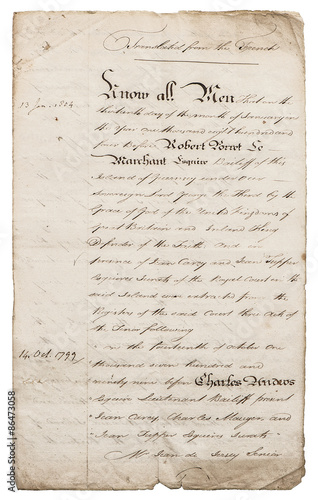 Translated from the French
13 Jan. 1804
Know all Men that on the
thirteenth day of the month of January in
the Year one thousand eight hundred and
four Before Robert Porret Le
Marchant Esquire Bailiff of this
Island of Guernsey under Our
Sovereign Lord George the Third by the
Grace of God of the United Kingdoms of
Great Britain and Ireland King
Defender of the Faith And in
presence of Jean Carey and Jean Tupper
Esquires Jurats of the Royal Court in the
said Island were extracted from the
Registers of the said Court three Acts of
the Tenor following
14 Oct. 1799
on the fourteenth October One
thousand seven hundred and
ninety nine before Charles Andros
Esquire Lieutenant Bailiff present
Jean Carey Charles and
Jean Tupper Esquires Jurats
Mr Jean de Jersey Senior
Adobe Stock | #86473058